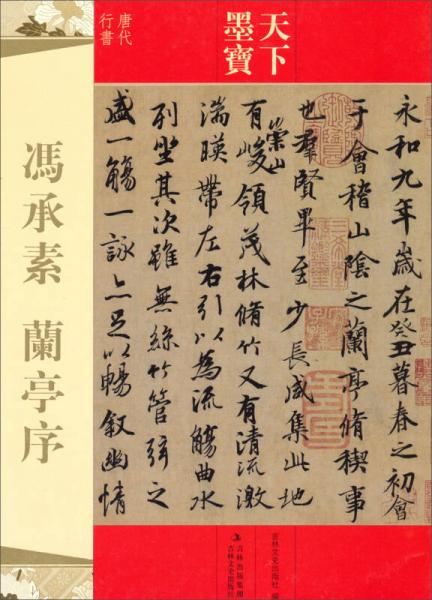 天下
墨寶
唐代
行書
馮承素 蘭亭序
永和九年歲在癸丑暮春之初會
于會稽山陰之蘭亭脩稧事
也羣賢畢至少長咸集此地
有崇山峻領茂林脩竹又有清流激
湍暎帶左右引以為流觴曲水
列坐其次雖無絲竹管弦之
盛一觴一詠亦足以暢敘幽情
吉林文史出版社 編
吉林出版集團
吉林文史出版社